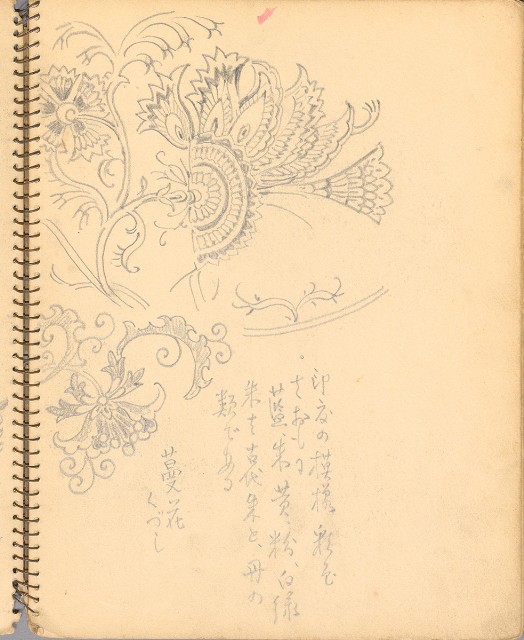 印度の模様、彩色
はおもに
藍、朱、黄、粉、白緑
朱は古代朱と、丹の
類である
蔓花
くづし